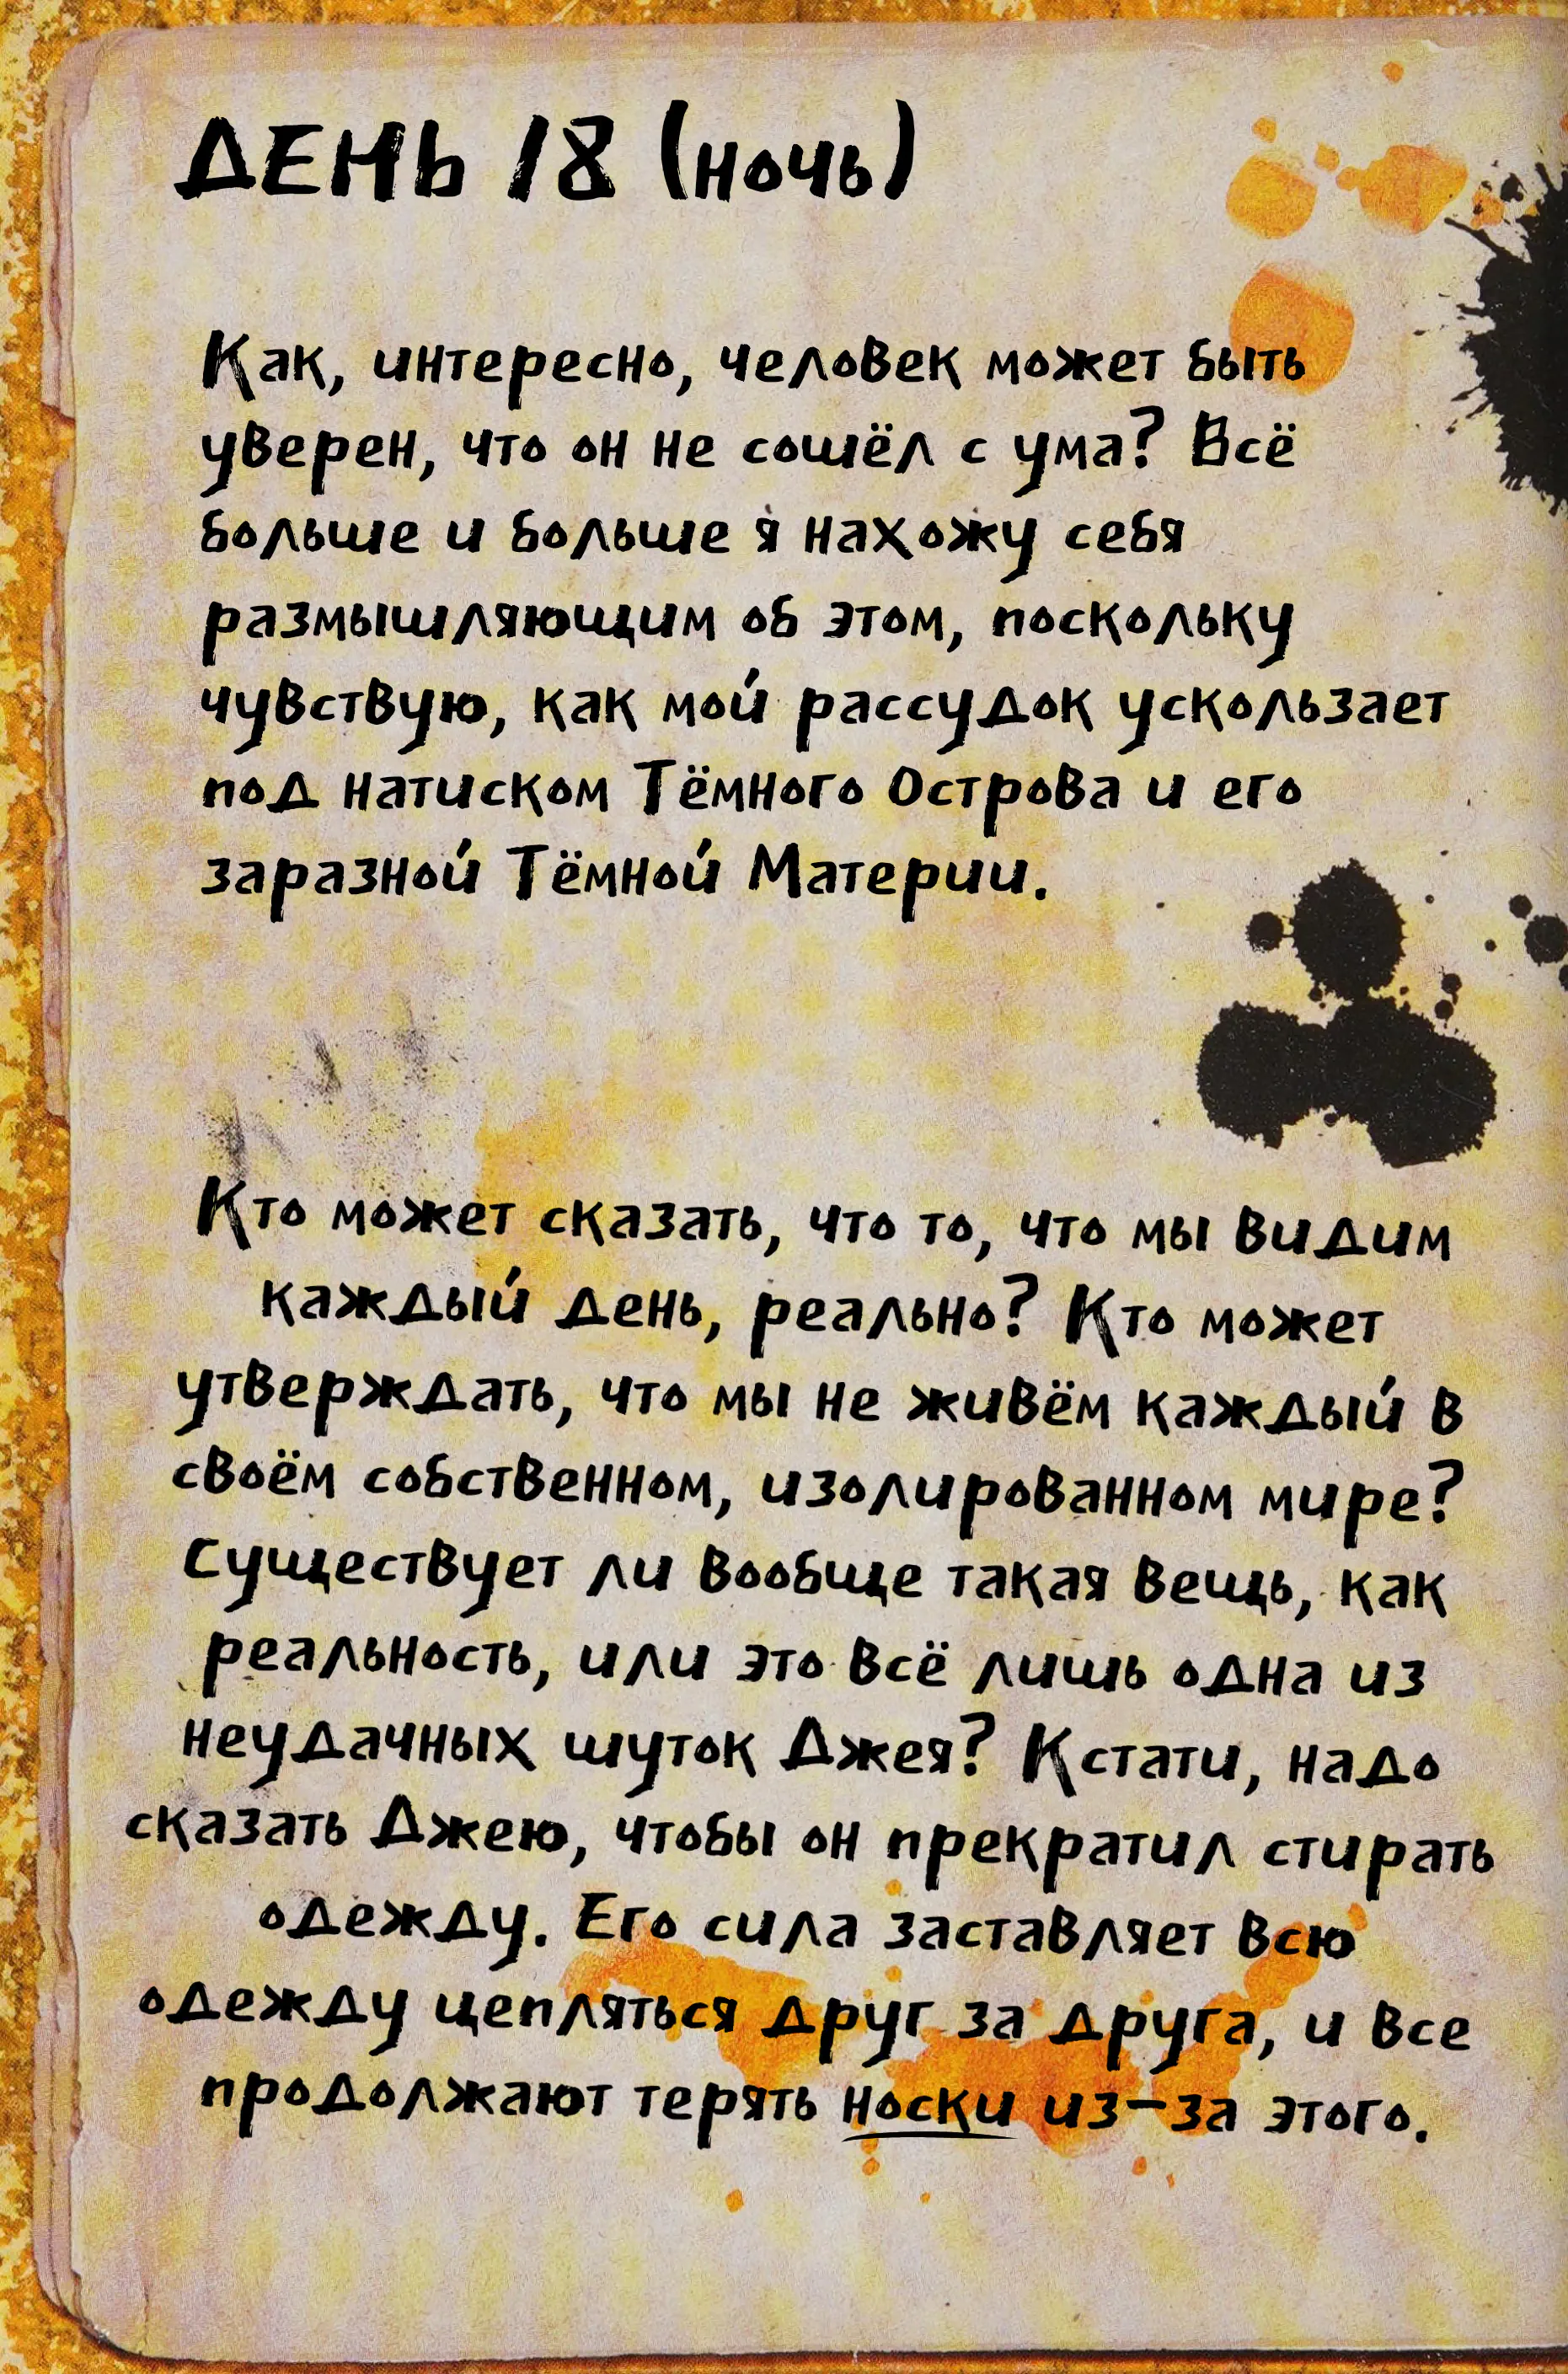 ДЕНЬ 18 (ночь)
Как, интересно, человек может быть
уверен, что он не сошёл с ума? Всё
больше и больше я нахожу себя
размышляющим об этом, поскольку
чувствую, как мой рассудок ускользает
под натиском Тёмного Острова и его
заразной Тёмной Материи.
Кто может сказать, что то, что мы видим
каждый день, реально? Кто может
утверждать, что мы не живём каждый в
своём собственном, изолированном мире?
Существует ли вообще такая вещь, как
реальность, или это всё лишь одна из
неудачных шуток Джея? Кстати, надо
сказать Джею, чтобы он прекратил стирать
одежду. Его сила заставляет всю
одежду цепляться друг за друга, и все
продолжают терять носки из-за этого.